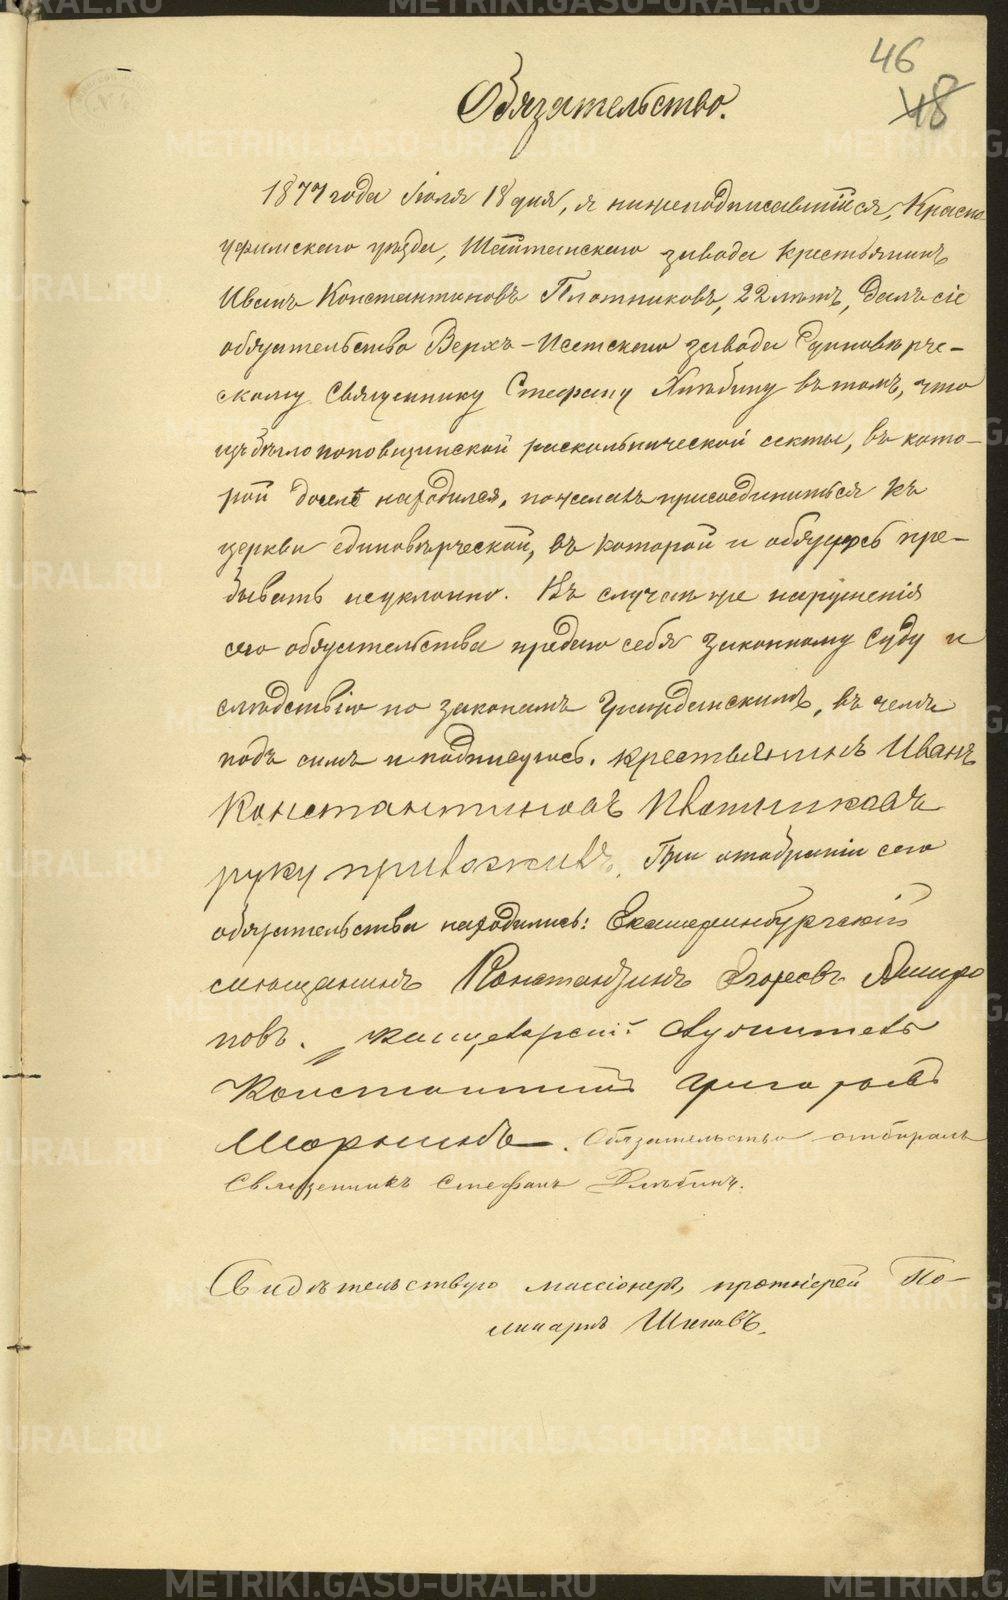 46
48
Обязательство.
1877 года Іюля 18 дня, я нижеподписавшійся, Красно
уфимскаго уѣзда, Шайтанскаго завода крестьянинъ
Иванъ Константиновъ Плотниковъ, 22 лѣтъ, далъ сіе
обязательство Верхъ-Исетскаго завода Единовѣрче-
скому Священнику Стефану Хлѣбину въ томъ, что
изъ бѣглопоповщинской раскольнической секты, въ кото-
рой доселѣ находился, пожелавъ присоединиться къ
церкви единовѣрческой, въ которой и обязуюсь пре-
бывать неуклонно. Въ случаѣ же нарушенія
сего обязательства предаю себя законному суду и
слѣдствію по законамъ Гражданскимъ, въ чемъ
подъ симъ и подписуюсь. крестьянинъ Иванъ
Константиновъ Плотниковъ
руку приложилъ. При отобраніи сего
обязательства находились: Екатеринбургскій
мѣщанинъ Константинъ Егоровъ
канцелярскій служитель
Константинъ Григорьевъ
Обязательство отбиралъ
Священникъ Стефанъ Хлѣбинъ.
Свидѣтельствую миссіонеръ, протоіерей По-
ликарпъ
METRIKI.GASO-URAL.RU